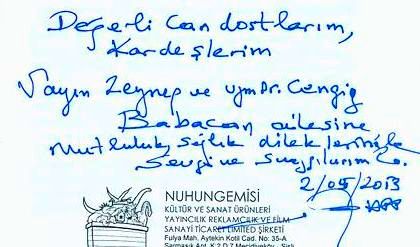 Değerli Can dostlarım,
Kardeşlerim
Sayın Zeynep ve uym Dr. Cengiz
Babacan ailesine
Mutluluk sağlık dileklerimle
Sevgi ve saygılarımla.
2/05/2013
NUHUNGEMİSİ
KÜLTÜR VE SANAT ÜRÜNLERİ
YAYINCILIK REKLAMCILIK VE FİLM
SANAYİ TİCARET LİMİTED ŞİRKETİ
Fulya Mah. Aytekin Kotil Cad. No: 35-A
Sarmaşık Apt. K.2 D.7 Mecidiyeköy - Şişli